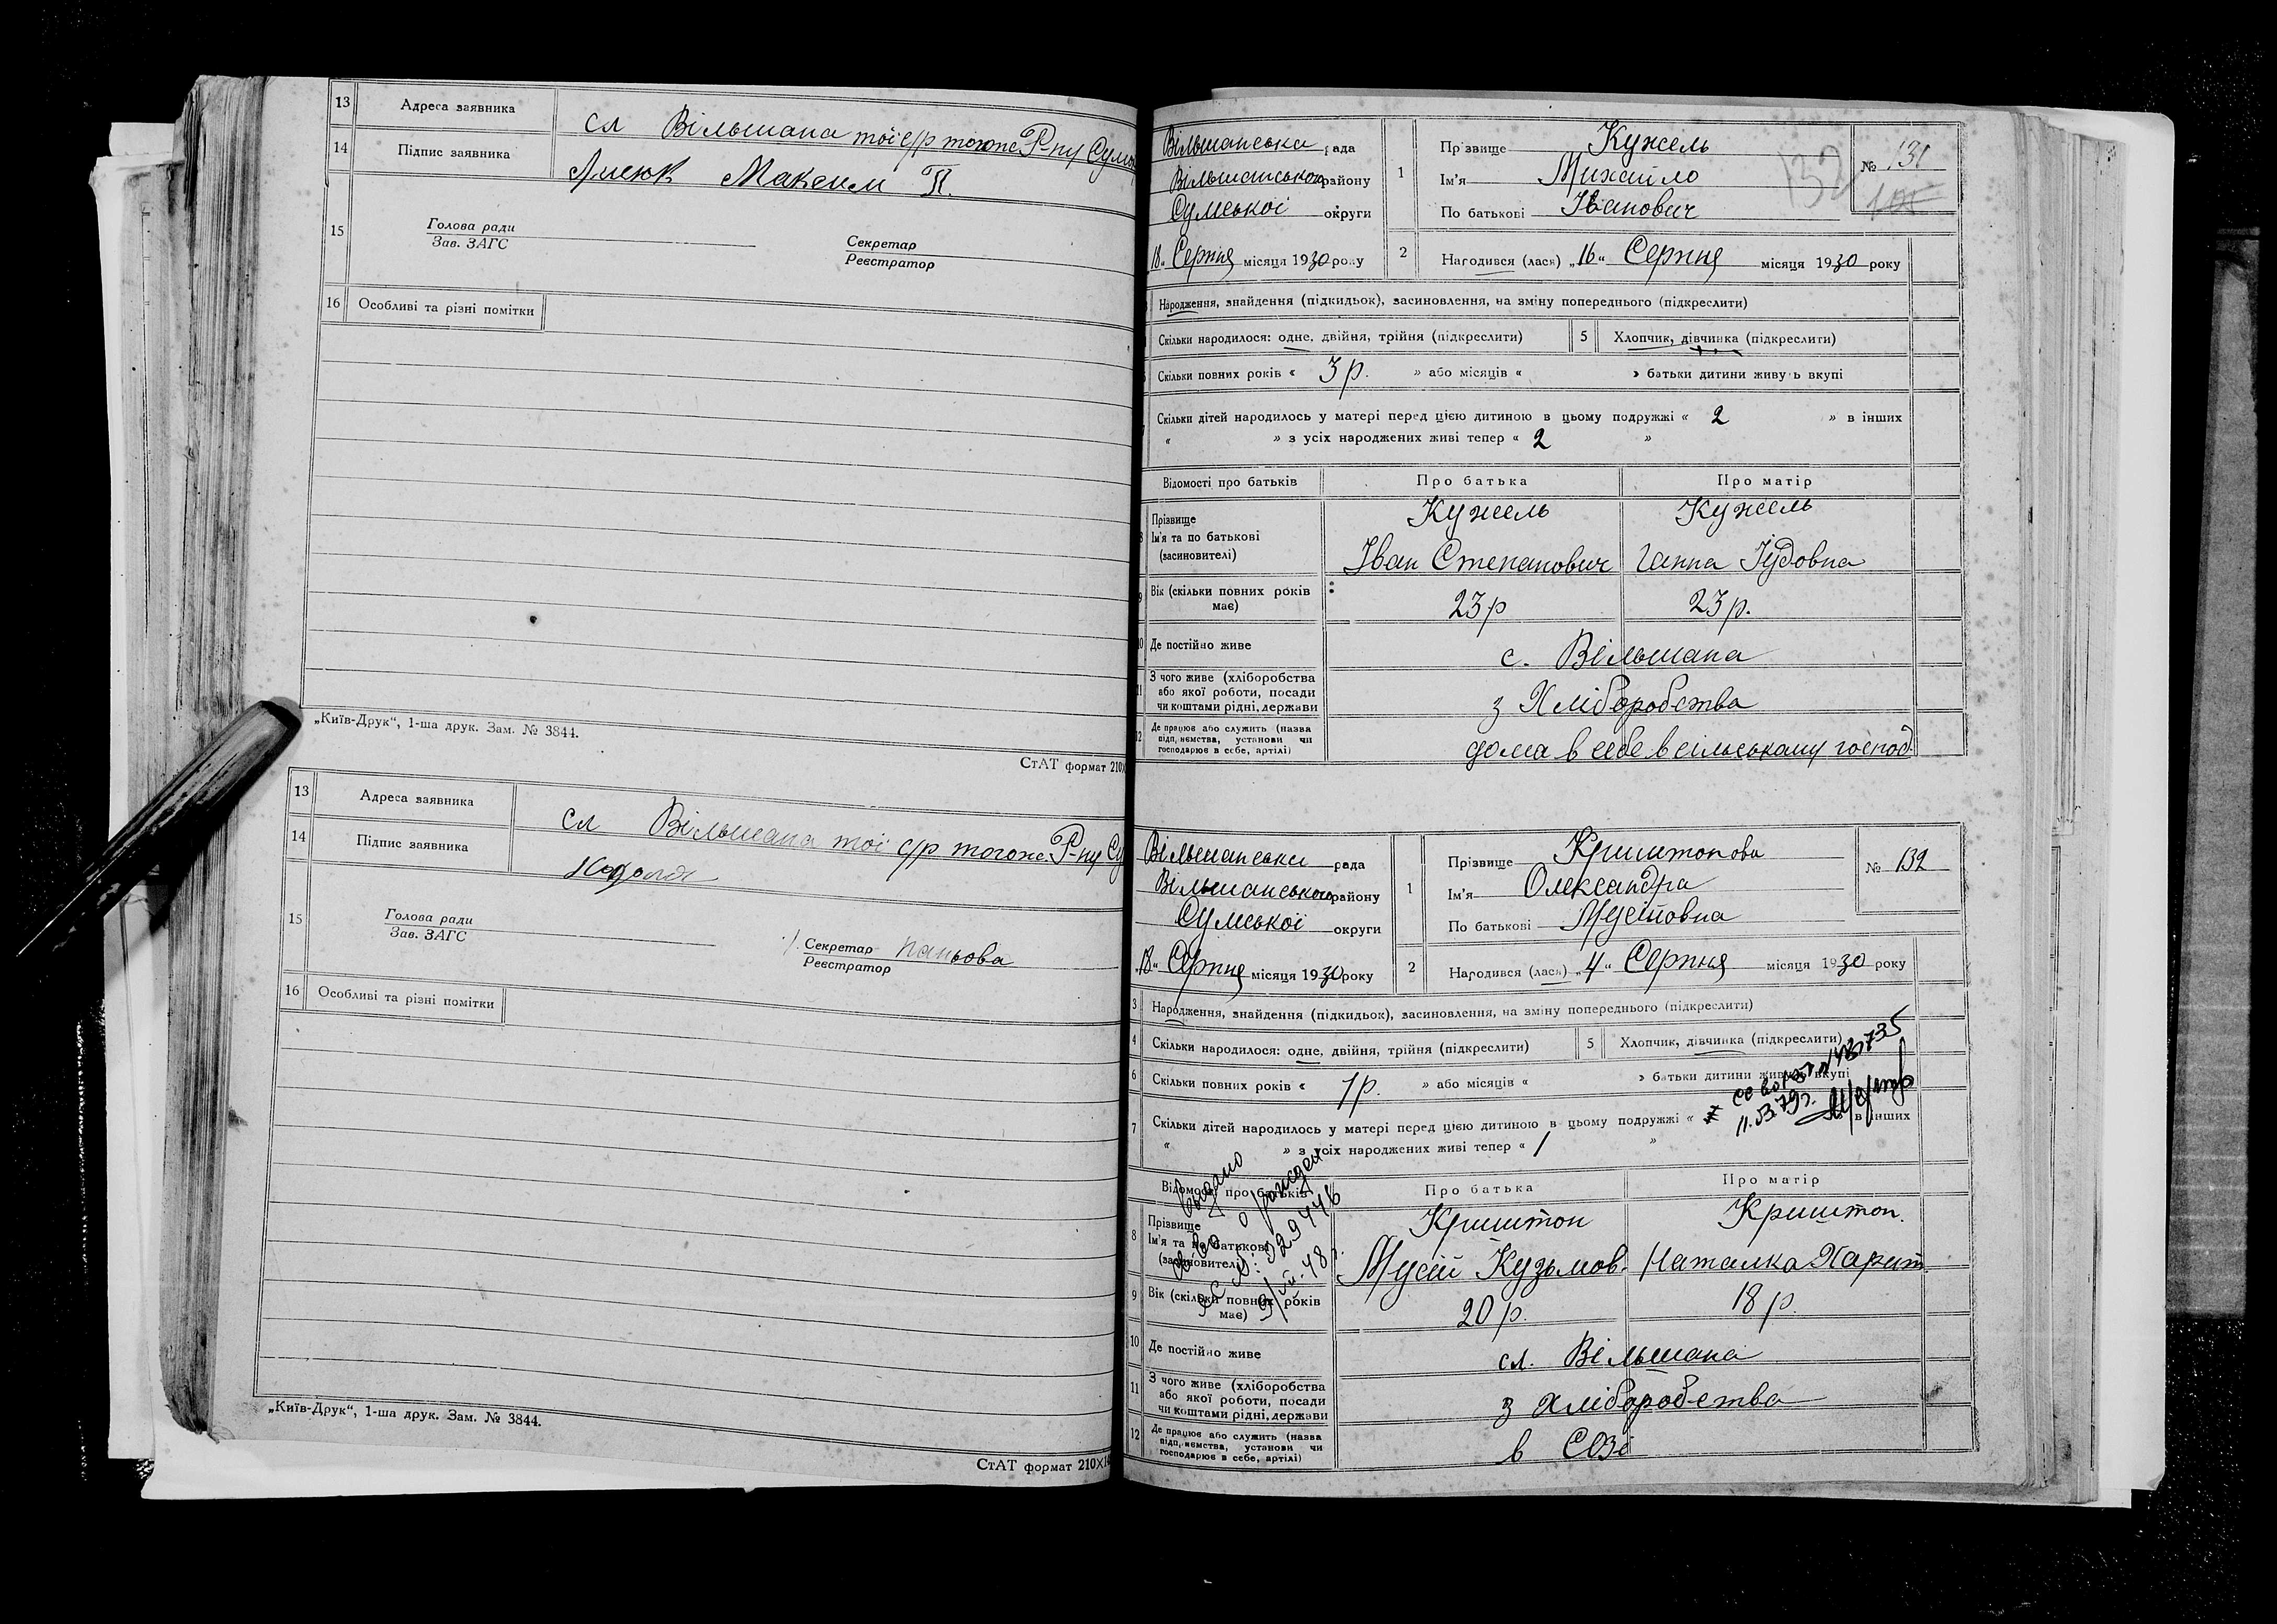 13 Адреса заявника сл Вільшана тої с/р тогоже Р-ну Сум
14 Підпис заявника Максим П.
15 Голова ради
Зав. ЗАГС
Секретар
Реєстратор
16 Особливі та різні помітки
„Київ-Друк“, 1-ша друк. Зам. № 3844.
СтАТ формат 210×
13 Адреса заявника сл Вільшана тої с/р тогоже Р-ну Су
14 Підпис заявника
15 Голова ради
Зав. ЗАГС
Секретар
Реєстратор
16 Особливі та різні помітки
„Київ-Друк“, 1-ша друк. Зам. № 3844.
СтАТ формат 210×14
Вільшанська рада
Вільшанського району
Сумської округи
„18“ Серпня місяця 1930 року
1 Прізвище Кужель
Ім'я Михайло
По батькові Іванович
132
№ 131
2 Народився (лася) „16“ Серпня місяця 1930 року
Народження, знайдення (підкидьок), засиновлення, на зміну попереднього (підкреслити)
Скільки народилося: одне, двійня, трійня (підкреслити) 5 Хлопчик, дівчинка (підкреслити)
Скільки повних років « 3 р. » або місяців « » батьки дитини живуть вкупі
Скільки дітей народилось у матері перед цією дитиною в цьому подружжі « 2 » в інших
« » з усіх народжених живі тепер « 2 »
Відомості про батьків Про батька Про матір
Прізвище Кужель Кужель
Ім'я та по батькові
(засиновителі) Іван Степанович Ганна Юдовна
9 Вік (скільки повних років
має) 23 р 23 р.
10 Де постійно живе с. Вільшана
11 З чого живе (хліборобства
або якої роботи, посади
чи коштами рідні, держави з Хліборобства
12 Де працює або служить (назва
підприємства, установи чи
господарює в себе, артілі) дома в себе в сільському господ.
Вільшанська рада
Вільшанського району
Сумської округи
„18“ Серпня місяця 1930 року
1 Прізвище Криштопова
Ім'я Олександра
По батькові Мусіївна
№ 132
2 Народився (лася) „4“ Серпня місяця 1930 року
3 Народження, знайдення (підкидьок), засиновлення, на зміну попереднього (підкреслити)
4 Скільки народилося: одне, двійня, трійня (підкреслити) 5 Хлопчик, дівчинка (підкреслити)
6 Скільки повних років « 1 р. » або місяців « » батьки дитини живуть вкупі
7 Скільки дітей народилось у матері перед цією дитиною в цьому подружжі « » в інших
« » з усіх народжених живі тепер « 1 »
Відомості про батьків Про батька Про матір
8 Прізвище Криштоп Криштоп.
Ім'я та по батькові
(засиновителі) Мусій Кузьмов. Наталка Харит.
9 Вік (скільки повних років
має) 20 р. 18 р.
10 Де постійно живе сл. Вільшана
11 З чого живе (хліборобства
або якої роботи, посади
чи коштами рідні, держави з хліборобства
12 Де працює або служить (назва
підприємства, установи чи
господарює в себе, артілі) в СОЗі